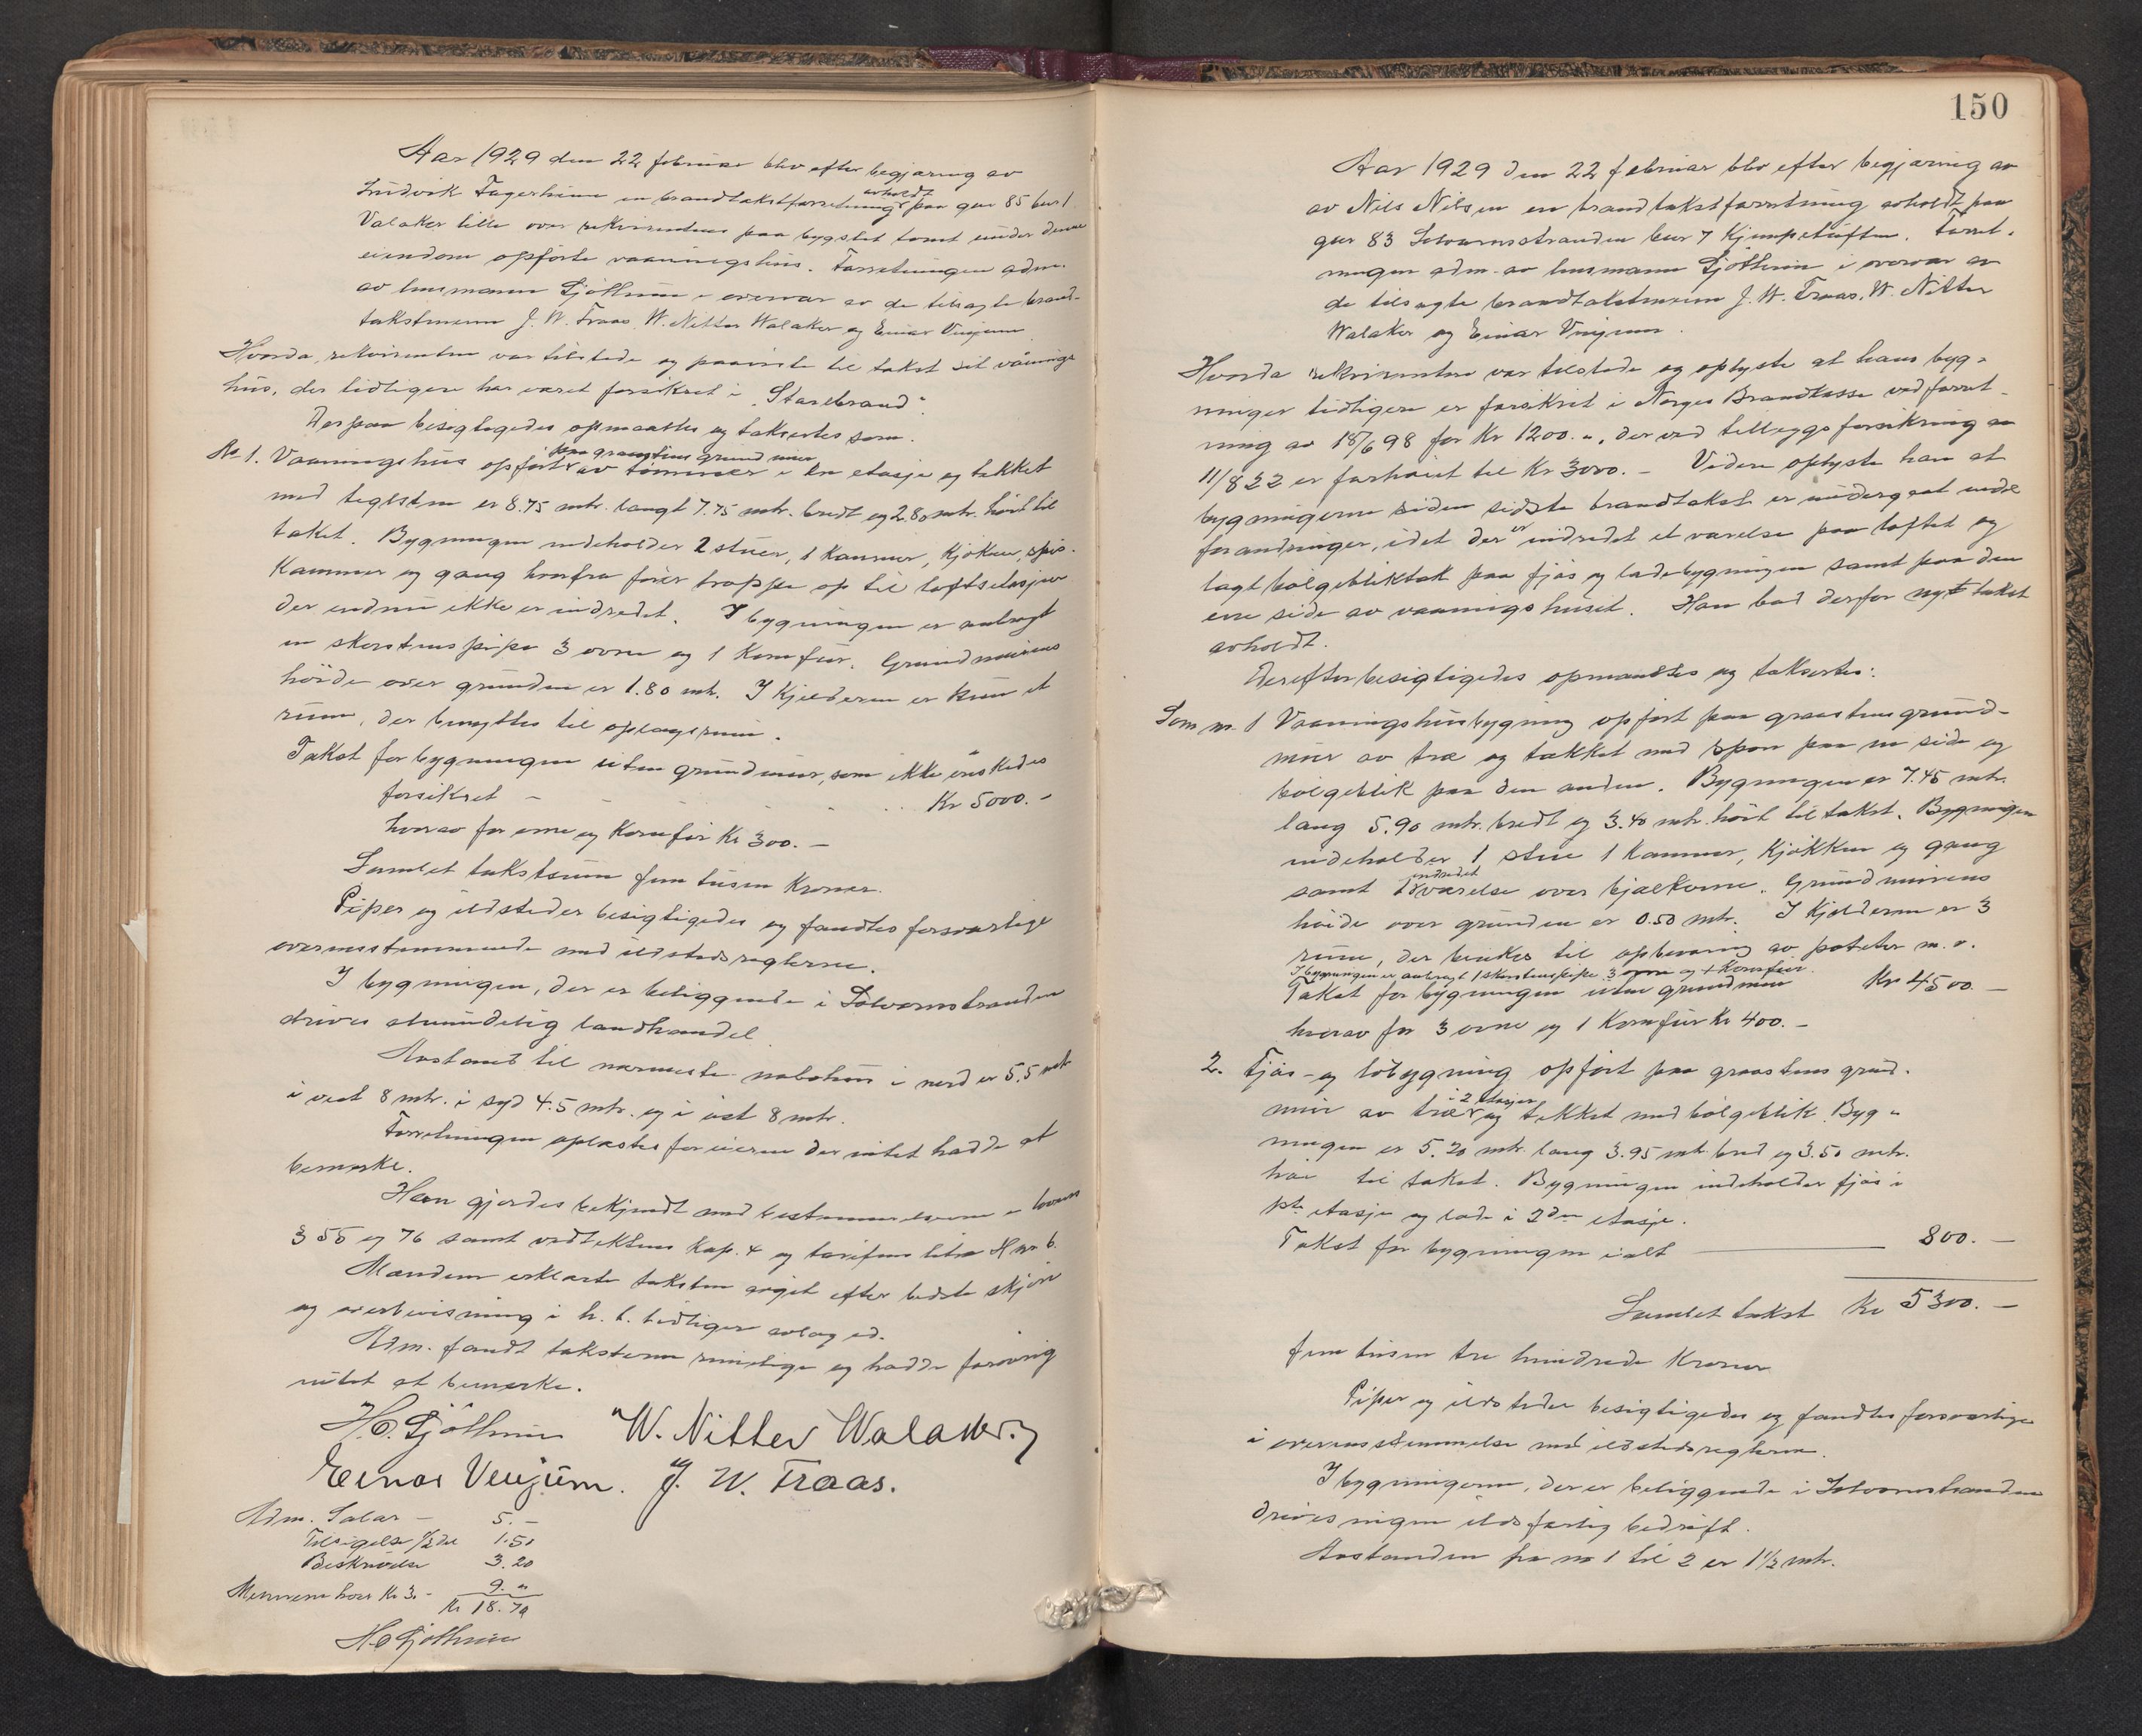 Aar 1929 den 22 februar blev efter begjæring av
Ludvik Fagerheim en brandtakstforretning avholdt paa gnr 85 bnr 1
Valaker lille over rekvirentens paa bygslet tomt under denne
eiendom opførte vaaningshus. Forretningen adm.
av lensmann Gjöthun i overvær av de tilsagte brand-
takstmenn J. W. Traas, W. Nitter Walaker og Einar Venjum
Hvorda rekvirenten var tilstede og paaviste til takst sit vånings
hus, der tidligere har været forsikret i "Storebrand".
Derpaa besigtigedes opmaaltes og taksertes som.
No 1. Vaaningshus opført paa graastens grundmur av tømmer i en etasje og tækket
med teglsten er 8.75 mtr. langt 7.75 mtr. bredt og 2.80 mtr. høit til
taket. Bygningen indeholder 2 stuer, 1 kammer, kjøkken, spis-
kammer og gang hvorfra fører trappe op til loftsetasjen
der endnu ikke er indredet. I bygningen er anbragt
en skorstenspipe 3 ovne og 1 komfür. Grundmurens
høide over grunden er 1.80 mtr. I kjelderen er kun et
rum, der benyttes til oplagsrum.
Takst for bygningen uten grundmur, som ikke ønskedes
forsikret - - - - Kr 5000.-
hvorav for ovne og komfür Kr 300.-
Samlet takstsum fem tusen kroner.
Piper og ildsteder besigtigedes og fandtes forsvarlige
overensstemmende med ildstedsreglerne.
I bygningen, der er beliggende i Solvornstranden
drives almindelig landhandel.
Avstand til nærmeste nabohus i nord er 5.5 mtr
i vest 8 mtr. i syd 4.5 mtr. og i øst 8 mtr.
Forretningen oplæstes for eieren der intet hadde at
bemerke.
Han gjordes bekjendt med bestemmelserne i lovens
§ 55 og 76 samt vedtektens kap. 4 og tarifens litra H nr 6.
Mændene erklærte taksten avgit efter bedste skjøn
og overbevisning i h. t. tidligere avlagt ed.
Adm. fandt taksterne rimelige og hadde forøvrig
intet at bemerke.
H. O. Gjöthun W. Nitter Walaker.
Einar Venjum. J. W. Traas.
Adm. Salar - 5.-
Tilsigelse 1/2 del 1.50
Beskrivelse 3.20
Mennene hver Kr 3.- 9. "
Kr 18.70
H. O. Gjöthun
150
Aar 1929 den 22 februar blev efter begjæring av
av Nils Nilsen en brandtakstforretning avholdt paa
gnr 83 Solvornsstranden bnr 7 Kjempetuften. Forret-
ningen adm. av lensmann Gjöthun i overvær av
de tilsagte brandtakstmenn J. W. Traas, W. Nitter
Walaker og Einar Venjum.
Hvorda rekvirenten var tilstede og oplyste at hans byg-
ninger tidligere er forsikret i Norges Brandkasse ved forret-
ning av 18/6 98 for Kr 1200.", der ved tillegsforsikring av
11/8 22 er forhøiet til Kr 3000.- Videre oplyste han at
bygningerne siden sidste brandtakst er undergaat endel
forandringer, idet der er indredet et værelse paa loftet og
lagt bølgebliktak paa fjøs og ladebygningen samt paa den
ene side av vaaningshuset. Han bad derfor nyt takst
avholdt.
Derefter besigtigedes opmaaltes og taksertes:
Som nr. 1 Vaaningshusbygning opført paa graastens grund-
mur av træ og tækket med spon paa en side og
bølgeblik paa den anden. Bygningen er 7.45 mtr.
lang 5.90 mtr. bredt og 3.40 mtr. høit til taket. Bygningen
indeholder 1 stue 1 kammer, kjøkken og gang
samt 1 indredet værelse over bjælkerne. Grundmurens
høide over grunden er 0.50 mtr. I kjelderen er 3
rum, der brukes til opbevaring av poteter m. v.
I bygningen er anbragt 1 skorstenspipe 3 ovne og 1 komfür.
Takst for bygningen uten grundmur Kr 4500.-
hvorav for 3 ovne og 1 komfür Kr 400.-
2. Fjøs- og løbygning opført paa graastens grund-
mur av træ i 2 etasjer og tekket med bølgeblik. Byg-
ningen er 5.20 mtr. lang 3.95 mtr. bred og 3.50 mtr.
høi til taket. Bygningen indeholder fjøs i
1ste etasje og lade i 2den etasje.
Takst for bygningen i alt 800.-
Samlet takst Kr 5300.-
fem tusen tre hundrede kroner
Piper og ildsteder besigtigedes og fandtes forsvarlige
i overensstemmelse med ildstedsreglerne.
I bygningerne, der er beliggende i Solvornstranden
drives ingen ildsfarlig bedrift.
Avstanden fra nr 1 til 2 er 1 1/2 mtr.